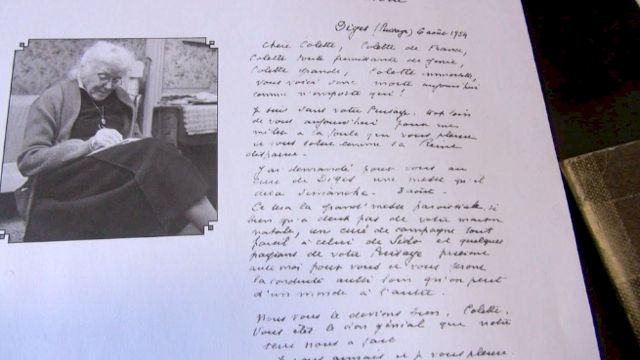 Diges (Puisaye) 6 août 1954
Chère Colette, Colette de France,
Colette toute puissante de génie,
Colette grande, Colette immortelle,
vous voici donc morte aujourd'hui
comme n'importe qui !
Je suis dans votre Puisaye, trop loin
de vous aujourd'hui pour me
mêler à la foule qui vous pleure
et vous salue comme sa Reine
disparue.
J'ai demandé pour vous au
curé de Diges une messe qu'il
dira dimanche - 8 août -
Ce sera la grand'messe paroissiale, si
bien qu'à deux pas de votre maison
natale, un curé de campagne tout
pareil à celui de Sido et quelques
paysans de votre Puisaye prieront
avec moi pour vous et vous feront
la conduite aussi loin qu'on peut
d'un monde à l'autre.
Nous vous le devions bien, Colette.
Vous êtes le don génial que notre
terre nous a fait
Je vous aimais et je vous pleure